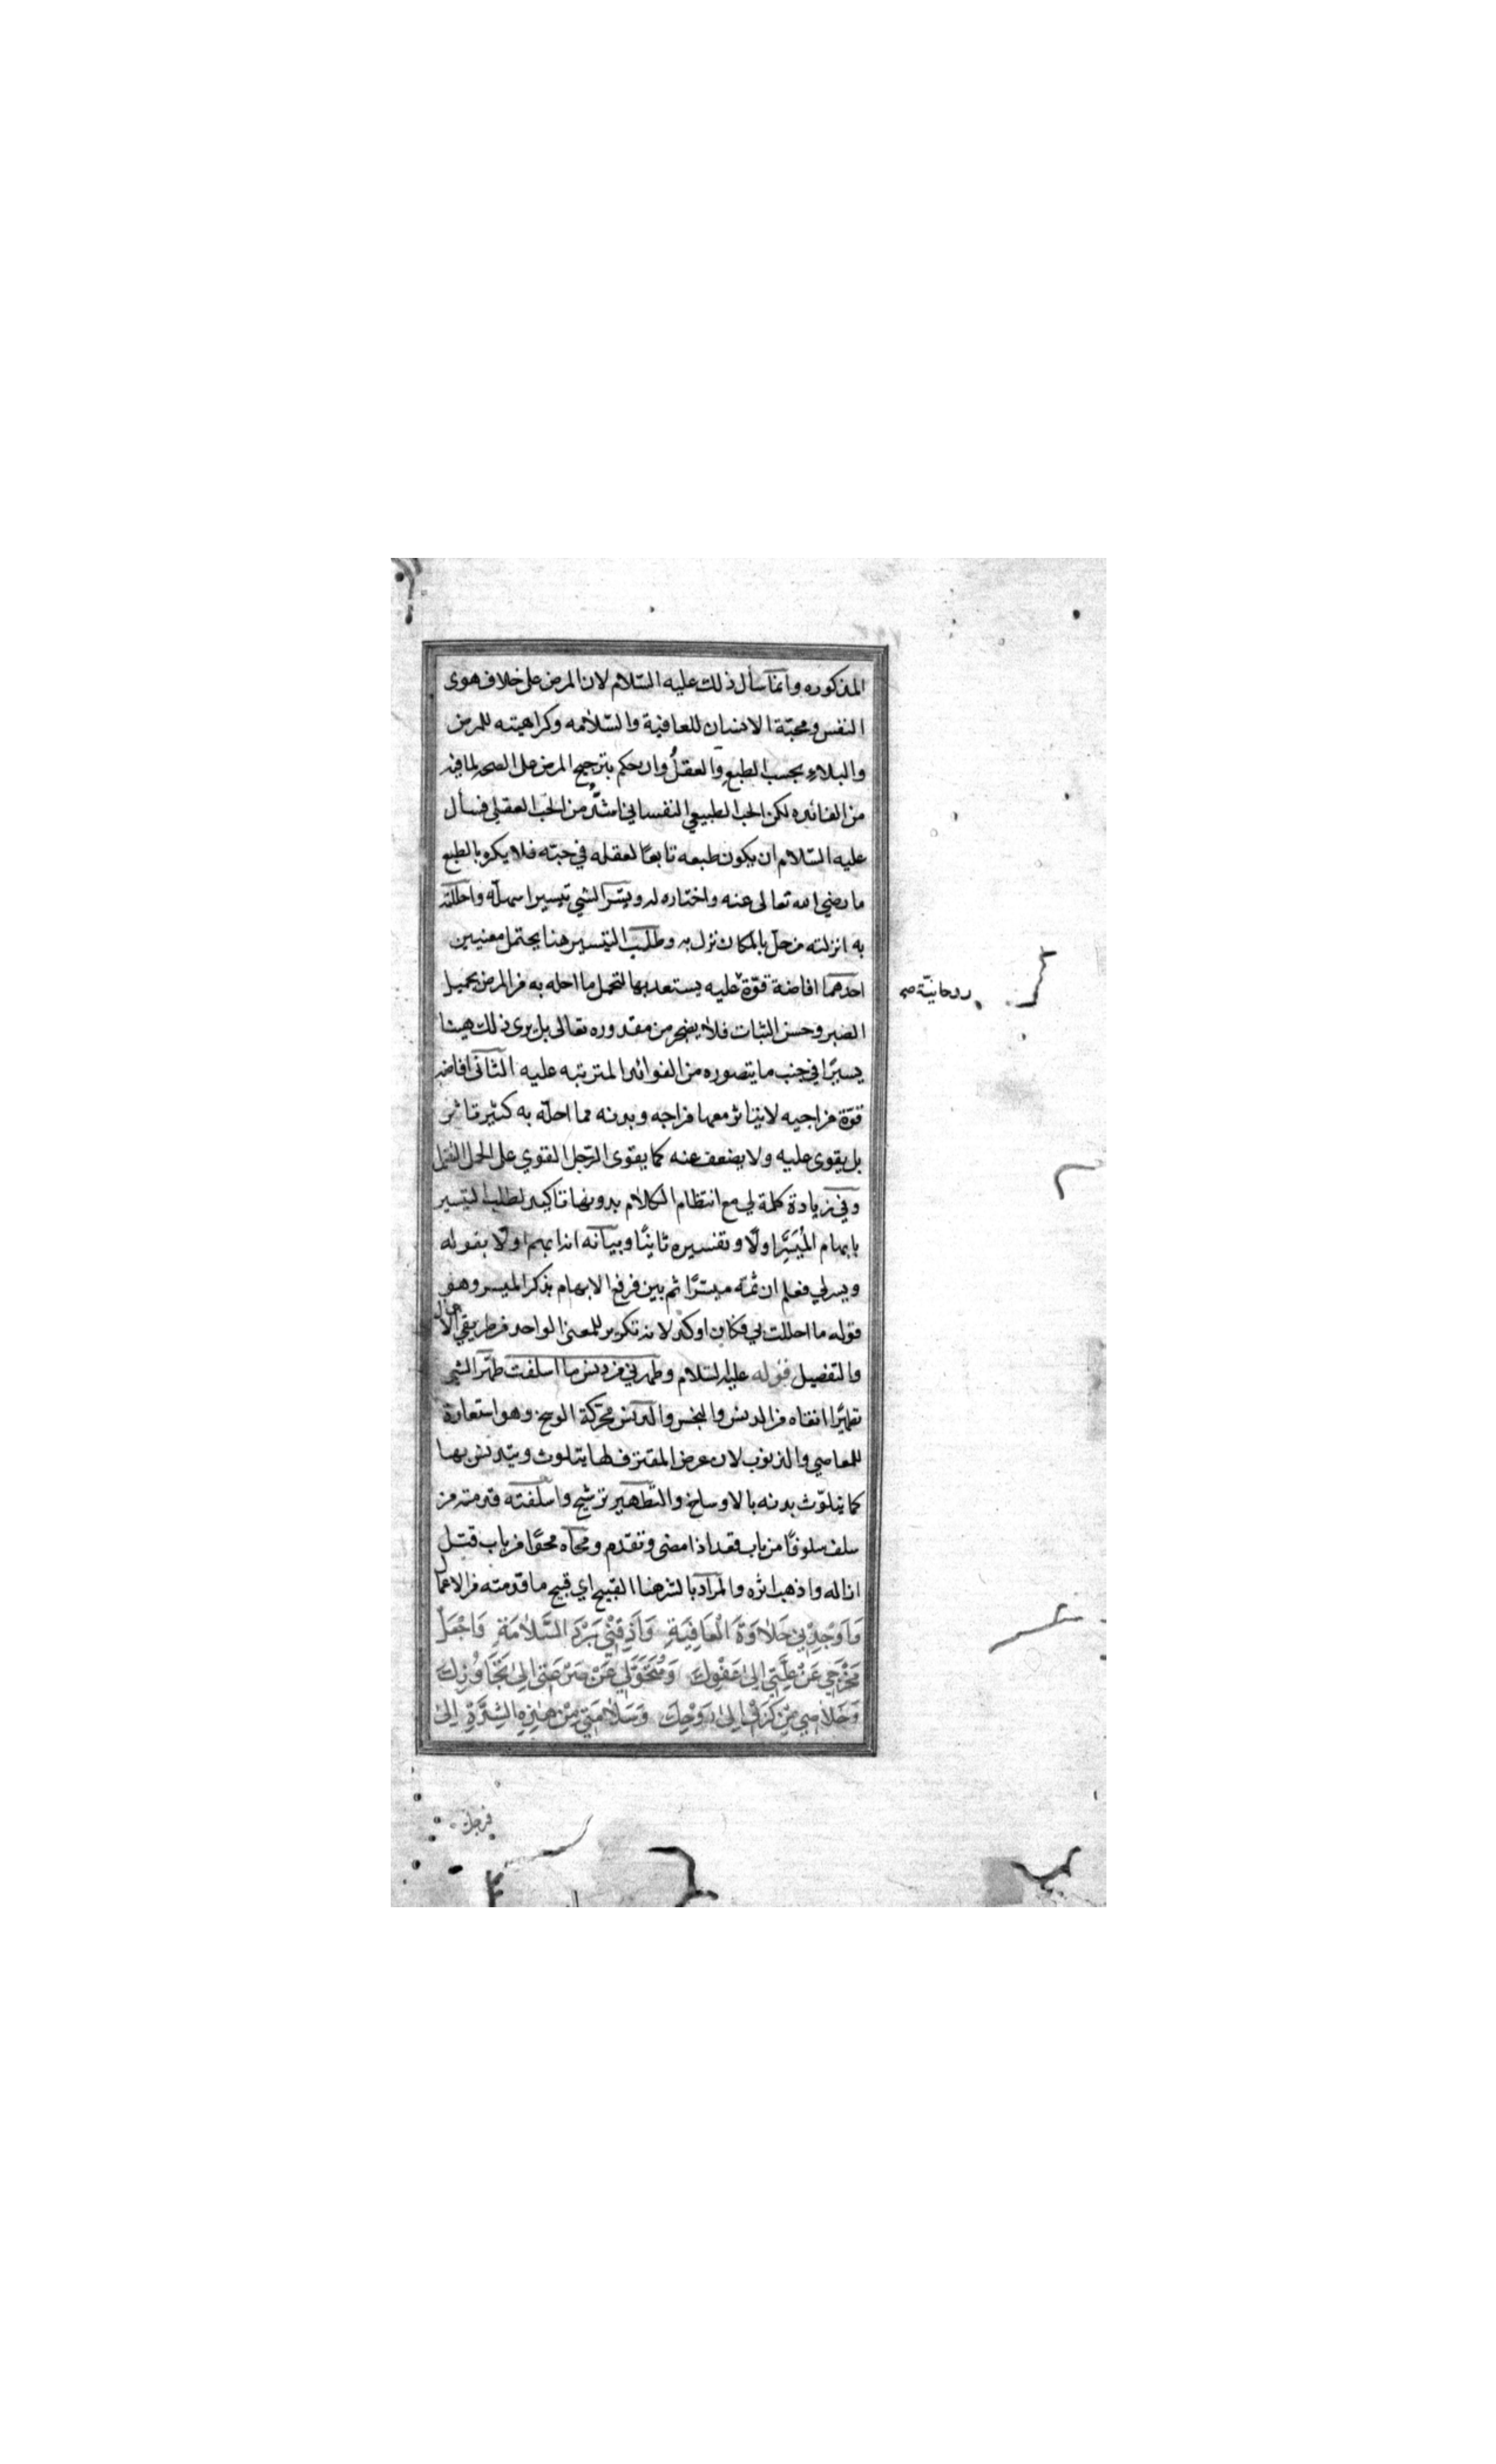 المذكوره وانما سأل ذلك عليه السّلام لان المرض على خلاف هوى
النفس ومحبّة الانسان للعافية والسّلامه وكراهيته للمرض
والبلاء بحسب الطبع والعقل وان حكم بترجيح المرض على الصحه لما فيه
من الفائده لكن الحب الطبيعي النفساني اشدّ من الحبّ العقلي فسأل
عليه السّلام ان يكون طبعه تابعًا لعقله في حبّه فلا يكره بالطبع
ما رضي الله تعالى عنه واختاره له ويسّر الشي تيسيرا سهلّه واحللته
به انزلته من حلّ بالمكان نزل به وطلب التيسير هنا يحتمل معنيين
احدهما افاضة قوّة عليه يستعد بها لتحمل ما احله به من المرض بجميل
روحانيّة صح
الصبر وحسن الثبات فلا يضجر من مقدوره تعالى بل يرى ذلك هينا
يسيرًا في جنب ما يتصوره من الفوائد المترتبه عليه الثاني افاضه
قوّة مزاجيه لا يتاثر معها مزاجه وبدنه مما احلّه به كثير تاثر
بل يقوى عليه ولا يضعف عنه كما يقوى الرّجل القوي على الحمل الثقيل
وفي زيادة كلمة لي مع انتظام الكلام بدونها تاكيد لطلب التيسير
بابهام المُيَسَّر اولًا وتفسيره ثانيًا وبيانه انه ابهم اولا بقوله
ويسر لي فعلم ان ثمّه ميسّرًا ثم بين فرفع الابهام بذكر الميسر وهو
قوله ما احللت بي فكان اوكد لانه تكرير للمعنى الواحد من طريقي الاجمال
والتفصيل قوله عليه السّلام وطهرني من دنس ما اسلفت طهّر الشي
تطهيرًا انقاه من الدنس والنجس والدنس محركة الوسخ وهو استعارة
للمعاصي والذنوب لان عرض المقترف لها يتلوث ويتدنس بها
كما يتلوّث بدنه بالاوساخ والتّطهير ترشيح واسلفته قدمته من
سلف سلوفًا من باب قعد اذا مضى وتقدم ومحاه محوًا من باب قتل
ازاله واذهب اثره والمراد بالشر هنا القبيح اي قبيح ما قدمته من الاعمال
وَاَوْجِدْنِي حَلَاوَةَ الْعَافِيَةِ وَاَذِقْنِي بَرْدَ السَّلَامَةِ وَاجْعَلْ
مَخْرَجِي عَنْ عِلَّتِي اِلى عَفْوِكَ وَمُتَحَوَّلِي عَنْ صَرْعَتِي اِلى تَجَاوُزِكَ
وَخَلَاصِي مِنْ كَرْبِي اِلى رَوْحِكَ وَسَلَامَتِي مِنْ هذِهِ الشِّدَّةِ اِلىٰ
فرجك